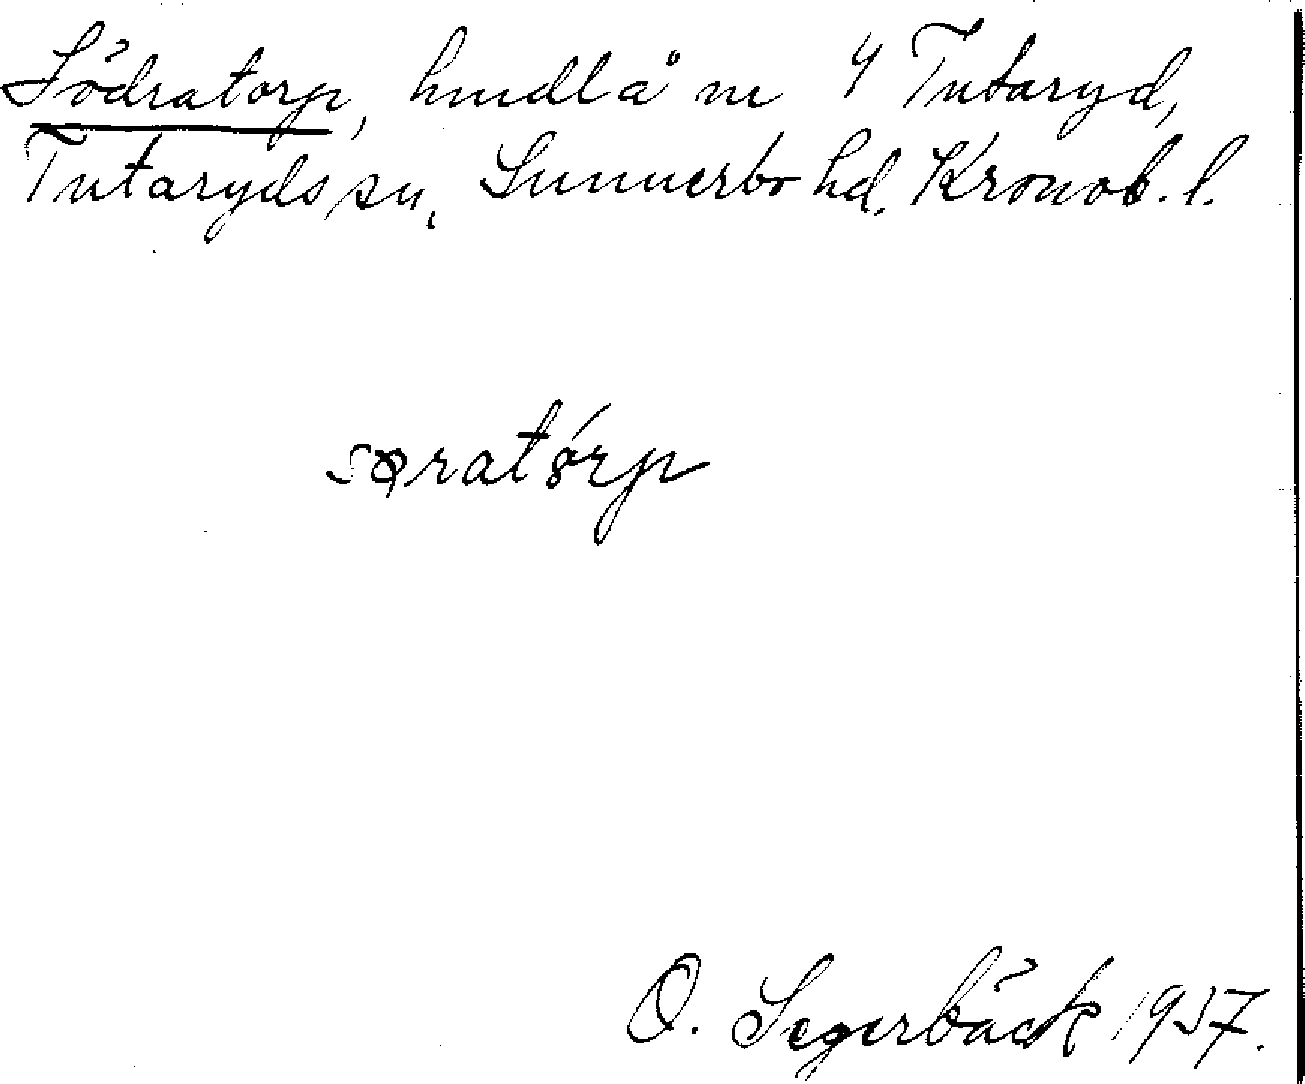 Södratorp, hmdlå nr 4 Tutaryd,
Tutaryds sn, Sunnerbo hd. Kronob. l.
sǫratórp
O. Segerbäck 1937.